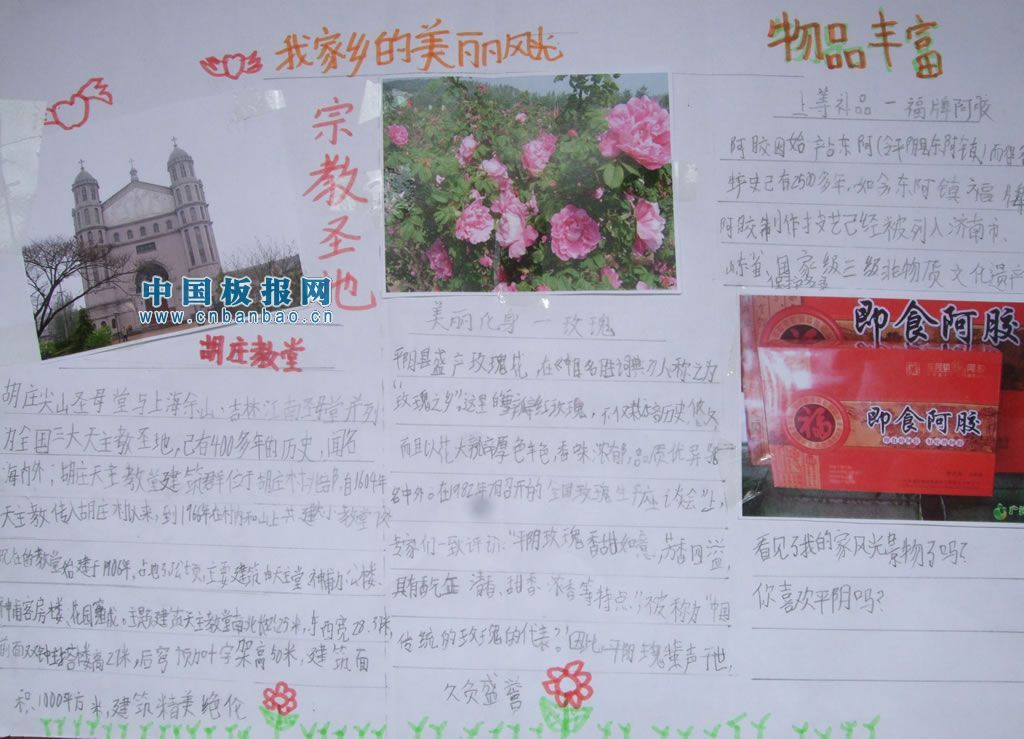 我家乡的美丽风光
物品丰富
宗教圣地
中国板报网
www.cnbanbao.cn
胡庄教堂
胡庄尖山圣母堂与上海佘山·吉林江南圣母堂并列
为全国三大天主教圣地,己有400多年的历史,闻名
海内外;胡庄天主教堂建筑群位于胡庄村北部,自1604年
天主教传入胡庄村以来,到1966年在村内和山上共建大小教堂
现在的教堂始建于1906年,占地,主要建筑由天主堂神甫办公楼、
神甫客房楼、花园组成。主题建筑天主教堂南北长25米,东西宽28.3米,
前面双钟塔楼高21米,后穹顶加十字架高50米,建筑面
积1000平方米,建筑精美绝伦
美丽化身一玫瑰
平阴县盛产玫瑰花,在《中国名胜词典》人称之为
“玫瑰之乡”。这里的重瓣红玫瑰,不仅栽培历史悠久
而且以花大瓣厚色丰色,香味浓郁,品质优异
名中外。在1982年召开的全国玫瑰生产座谈会上,
专家们一致评价:“平阴玫瑰香甜如意,芳香四溢,
具有 清香、甜香、浓香等特点”,被称为“中国
传统的玫瑰的代表”。因此,平阴玫瑰蜚声于世,
久负盛誉
上等补品一福牌阿胶
阿胶因始产古东阿(今平阴县东阿镇)而得
史已有2500多年,如今东阿镇福牌
阿胶制作技艺己经被列入济南市、
山东省、国家级三级非物质文化遗产
即食阿胶
福
即食阿胶
看见了我的家风光景物了吗?
你喜欢平阴吗?